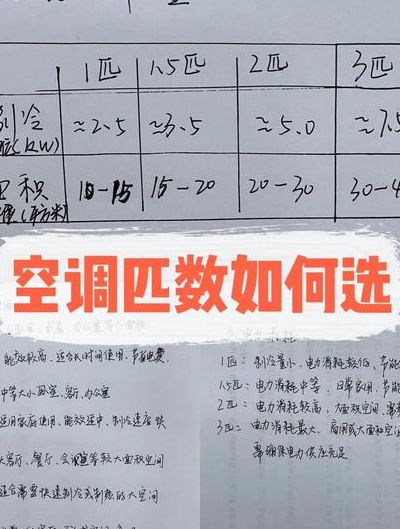 1匹 1.5匹 2匹 3匹
制冷 ≈2.5 ≈3.5 ≈5.0 ≈7.5
(KW)
面积 10-15 15-20 20-30 30-4
(平方米)
空调匹数如何选
能效较高、适合长时间使用、节省电费
中等大小卧室、客厅、办公室
适用家庭使用、能效适中、制冷速度快
大客厅、餐厅、会议室等较大面积空间
适合需要快速制冷或制热的大空间
1匹：制冷量小、电力消耗较低、节能
1.5匹：电力消耗中等、日常家用、节能
2匹：电力消耗较高、大面积空间、需
3匹：电力消耗最大、商用或大面积空间
需确保电力供应充足